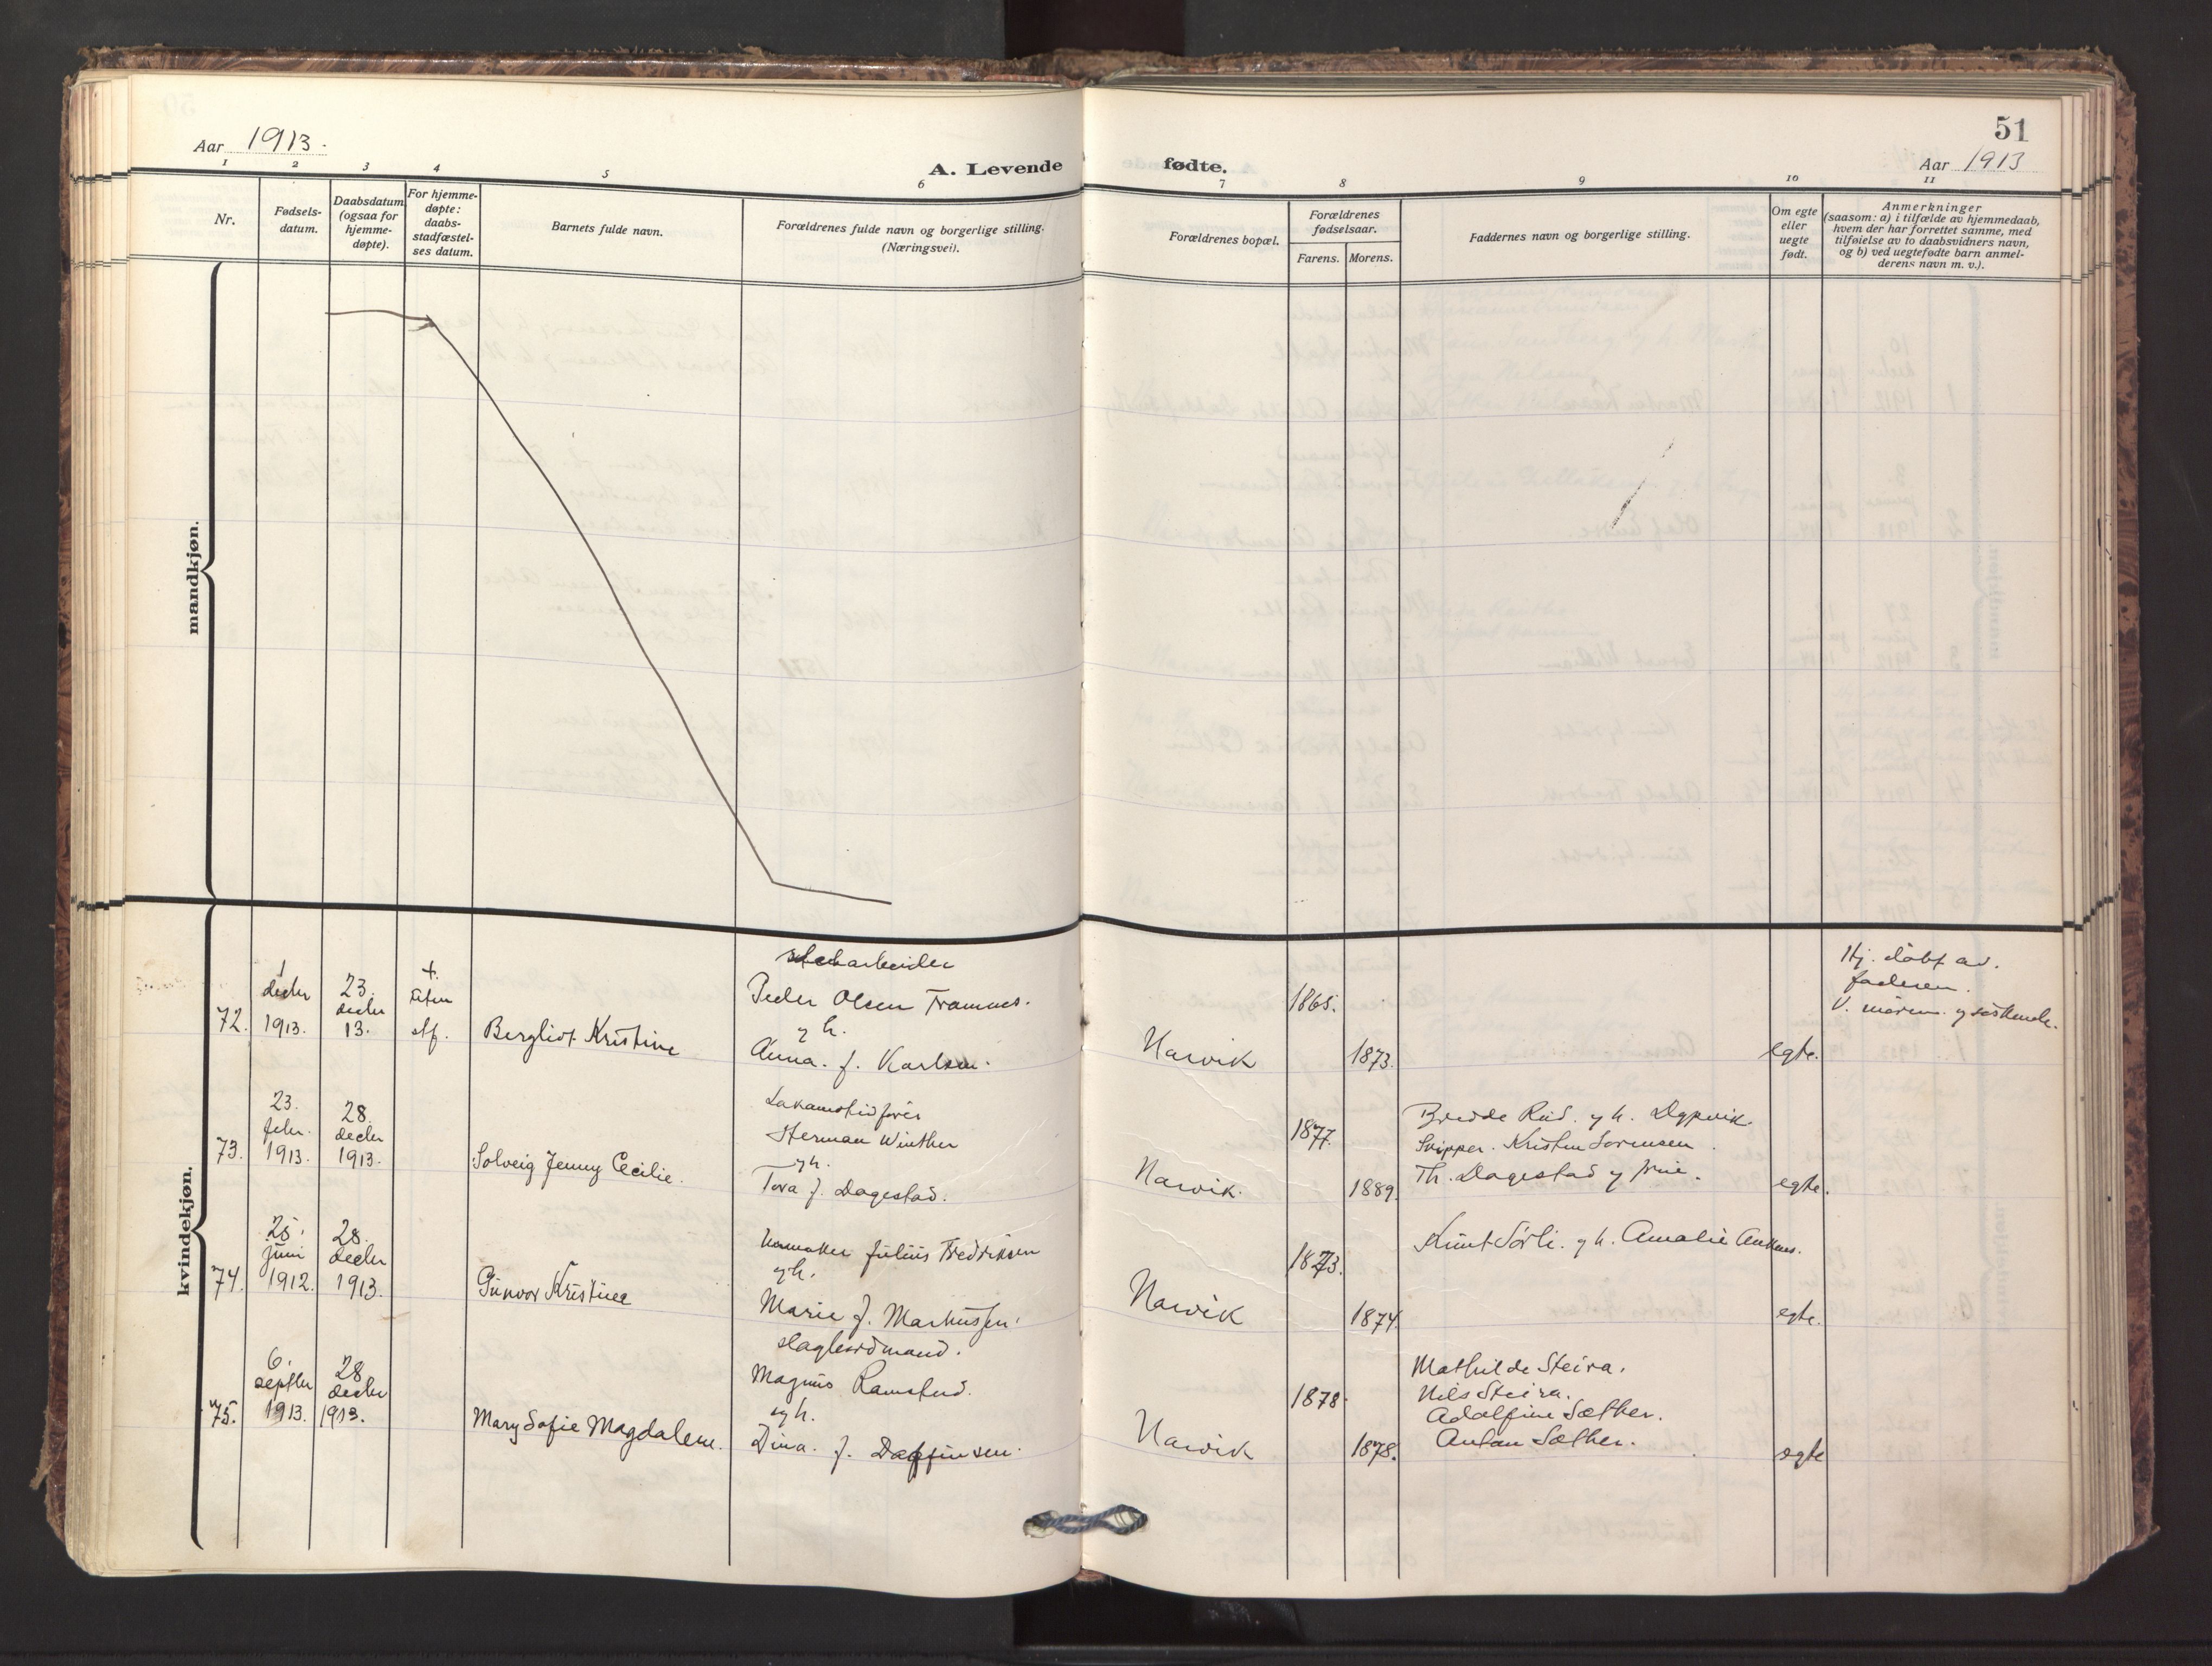 51
Aar 1913.
Aar 1913
A. Levende fødte.
1 2 3 4 5 6 7 8 9 10 11
Nr.
Fødsels-
datum.
Daabsdatum
(ogsaa for
hjemme-
døpte).
For hjemme-
døpte:
daabs-
stadfæstel-
ses datum.
Barnets fulde navn.
Forældrenes fulde navn og borgerlige stilling.
(Næringsvei).
Forældrenes bopæl.
Forældrenes
fødselsaar.
Farens. Morens.
Faddernes navn og borgerlige stilling.
Om egte
eller
uegte
født.
Anmerkninger
(saasom: a) i tilfælde av hjemmedaab,
hvem der har forrettet samme, med
tilføielse av to daabsvidners navn,
og b) ved uegtefødte barn anmel-
derens navn m. v.).
mandkjøn.
kvindekjøn.
72.
1
decbr
1913.
23.
decbr
13.
+
uten
stf.
Bergliot Kristine
Peder Olsen Framnes.
g h.
Anna. f. Karlsen.
Narvik
1865.
1873.
egte.
Hj. døbt av.
faderen.
V. moren g søskende.
73.
23.
febr.
1913.
28.
decbr
1913.
Solveig Jenny Cecilie.
Lokomotivfører
Herman Winther
g h.
Tora f. Dagestad.
Narvik.
1877.
1889.
Bredde Rud. g h. Dypvik
Skipper. Kristen Sorensen.
Th. Dagestad g frue.
egte.
74.
25.
juni
1912.
28.
decbr
1913.
Gunvor Kristine
Julius Fredriksen
g h.
Marie f. Markussen.
Narvik
1873.
1874.
Knut Sörli. g h. Amalie
egte.
75.
6.
septbr
1913.
28
decbr
1913.
Mary Sofie Magdalene.
Magnus Ramstad.
g h.
Dina. f. Dagfinsen.
Narvik
1878.
1878.
Mathilde Steira.
Nils Steira.
Adolfine Sæther.
Anton Sæther.
egte